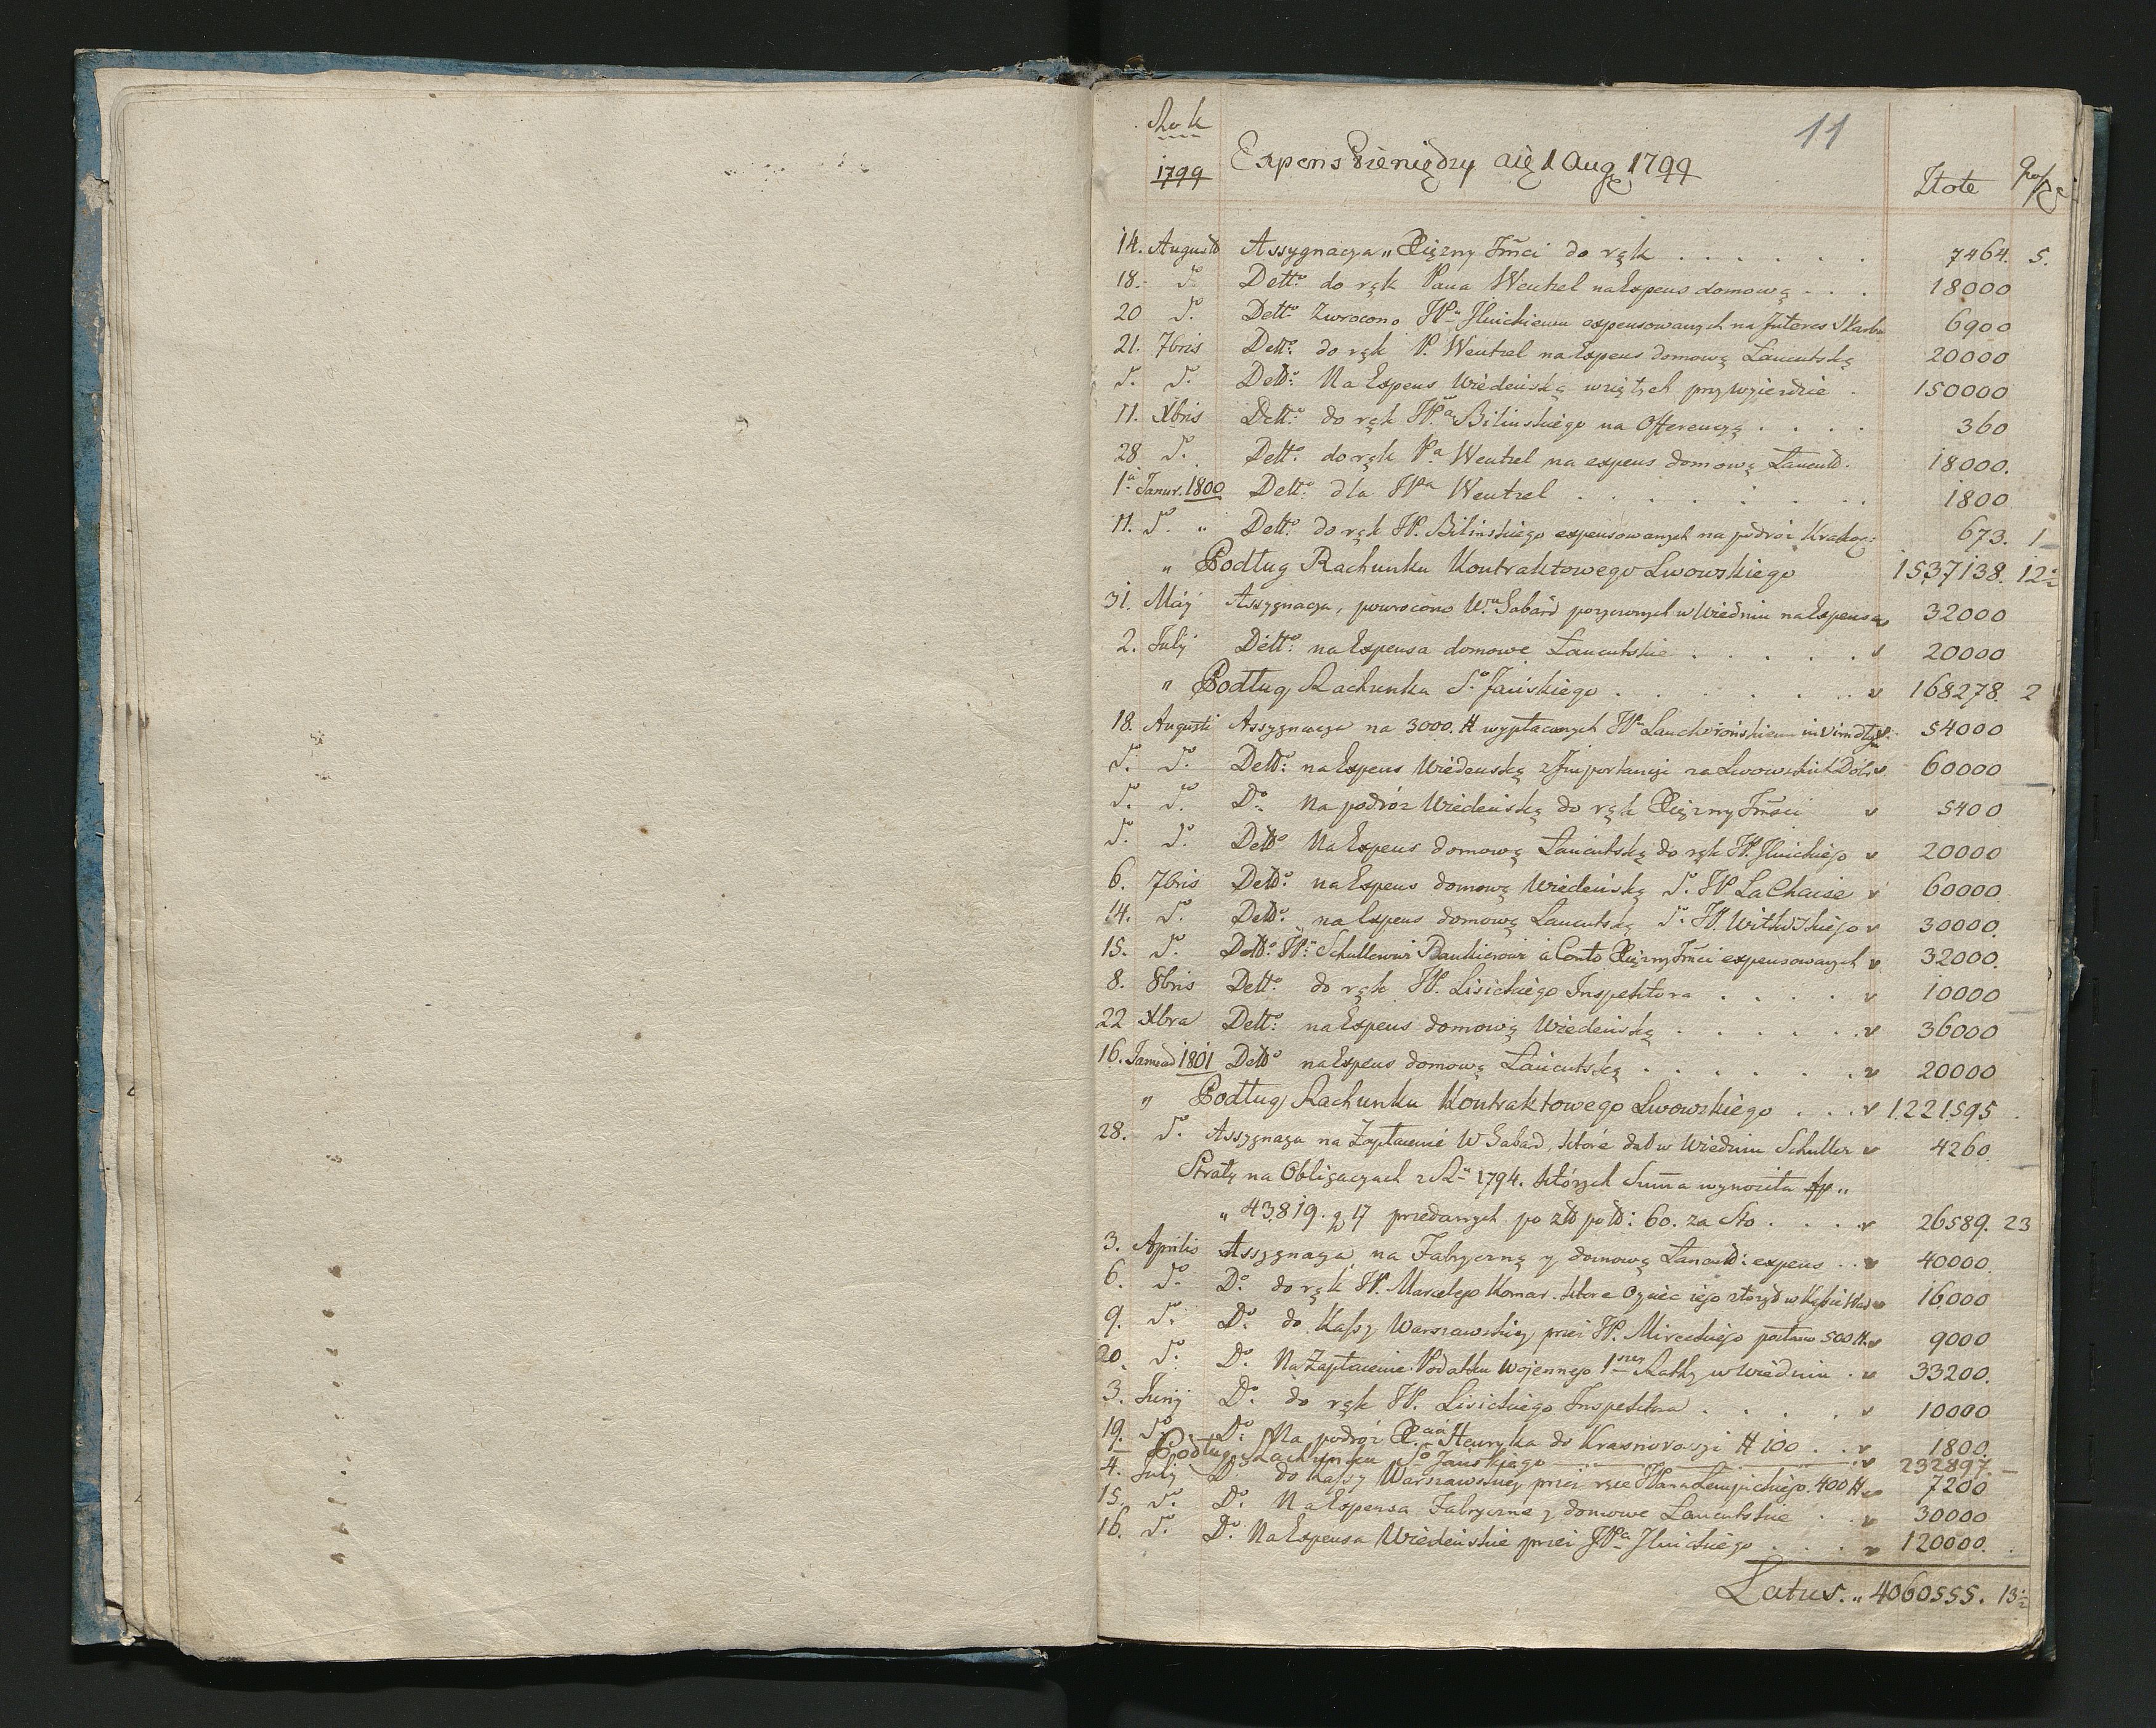 Rok
11
1799 Expens Pieniędzy a 1 Aug 1799 Złote
14. Augusto Assygnacya „ Xiężny Jmci do rąk . . . . . . 7464. 5.
18. do Detto do rąk Pana Wentzel na Expens domową . . . 18000
20 do Detto Zwrocono JPu Ilnickiemu expensowanych na Interes Skarbu 6900
21. 7bris Detto: do rąk P. Wentzel na Expens domową Łancutską 20000
do do Detto: Na Expens Wiedeńską wziętych przy wyieździe . 150000
11. Xbris Detto: do rąk JPa Bilinskiego na Offerencyą . . . . 360
28 do Detto: do rąk Pa Wentzel na expens domową Łancuto. 18000.
1a Janur. 1800 Detto: dla JPa Wentzel . . . . . . . 1800
11. do „ Detto: do rąk JP. Bilinskiego expensowanych na podróż Krakos: 673. 1
„ Podług Rachunku Kontraktowego Lwowskiego 1537138. 12½
31. Máij Assygnacya, powrocono W. Gabard pozyczonych w Wiedniu na Expensa 32000
2. Julij Detto: na Expensa domowe Łancutskie . . . . . v 20000
„ Podług Rachunku So Jańskiego . . . . . . . . v 168278. 2
18. Augusti Assygnacya na 3000. # wypłaconych JPu Lanckorońskiemu in vim długu v 54000
do do Detto: na Expens Wiedenską z Importancyi za Lwowskich Dób v 60000
do do Do Na podróz Wiedeńską do rąk Xiężny Jmści v 5400
do do Detto Na Expens domową Łancutską do rąk JP. Ilnickiego v 20000
6. 7bris Detto: na Expens domową Wiedeńską do JP LaChaise v 60000.
14. do Detto: na Expens domową Łancutską do JP. Witkowskiego v 30000.
15. do Detto: JPu Schullerowi Bankierowi à Conto Xiężny Jmci expensowanych v 32000.
8. 8bris Detto: do rąk JP. Lisickiego Inspektora . . . . v 10000
22 Xbra Detto: na Expens domową Wiedeńską . . . . . . v 36000
16. 1801 Detto na Expens domową Łancutską . . . . . . . v 20000
„ Podług Rachunku Kontraktowego Lwowskiego . . . v 1221595 .
28. do Assygnaya na Zapłacenie W Gabard, które dał w Wiedniu Schuller v 4260.
Straty na Obligacyach z R 1794. których Summa wynosiła „
„ 43819. g 17 przedanych po : 60. za Sto . . . . v 26589. 23
3. Aprilis Assygnaya na Fabryczną y domową Łancuto: expens . . v 40000.
6. do Do do rąk JP. Marcelego Komar. które Oyciec iego złożył w v 16000
9. do Do do Kassy Warszawskiey przez JP. Mireckiego posłano 500 #. v 9000
20. do Do Na Zapłacenie Podatku Wojennego 1szey Ratty w Wiedniu . v 33200.
3. Junij Do do rąk JP. Lisickiego Inspektora . . . . . v 10000
19. do Do Na podróż Xcia Henryka do # 100 . . v 1800.
Podług Rachunku So Jańskiego v 232897. –
4. Julij Do do Kassy Warszawskiey przez ręce JPana . 400 # v 7200
15. do Do Na Expensa Fabryczne y domowe Łancutskie . . v 30000
16. do Do Na Expensa Wiedeńskie przez JPa Ilnickiego . . . v 120000. .
Latus. „ 4060555. 13½